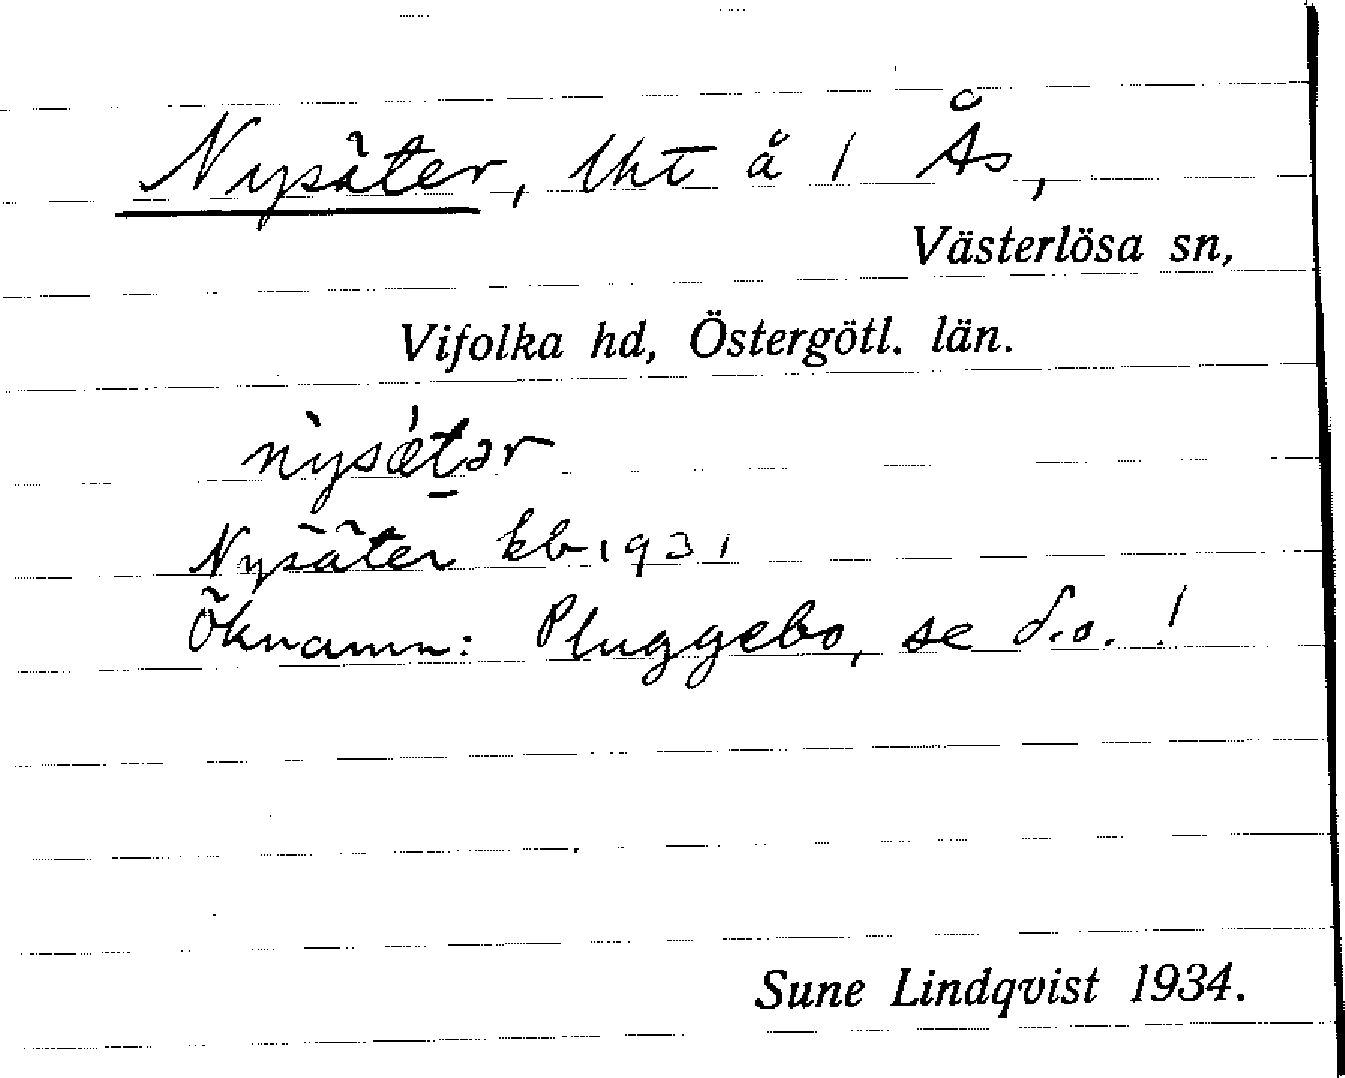 Nysäter, lht å 1 Ås,
Västerlösa sn,
Vifolka hd, Östergötl. län.
nỳsǽtər
Nysäter kb 1931
Öknamn: Pluggebo, se d.o. !
Sune Lindqvist 1934.